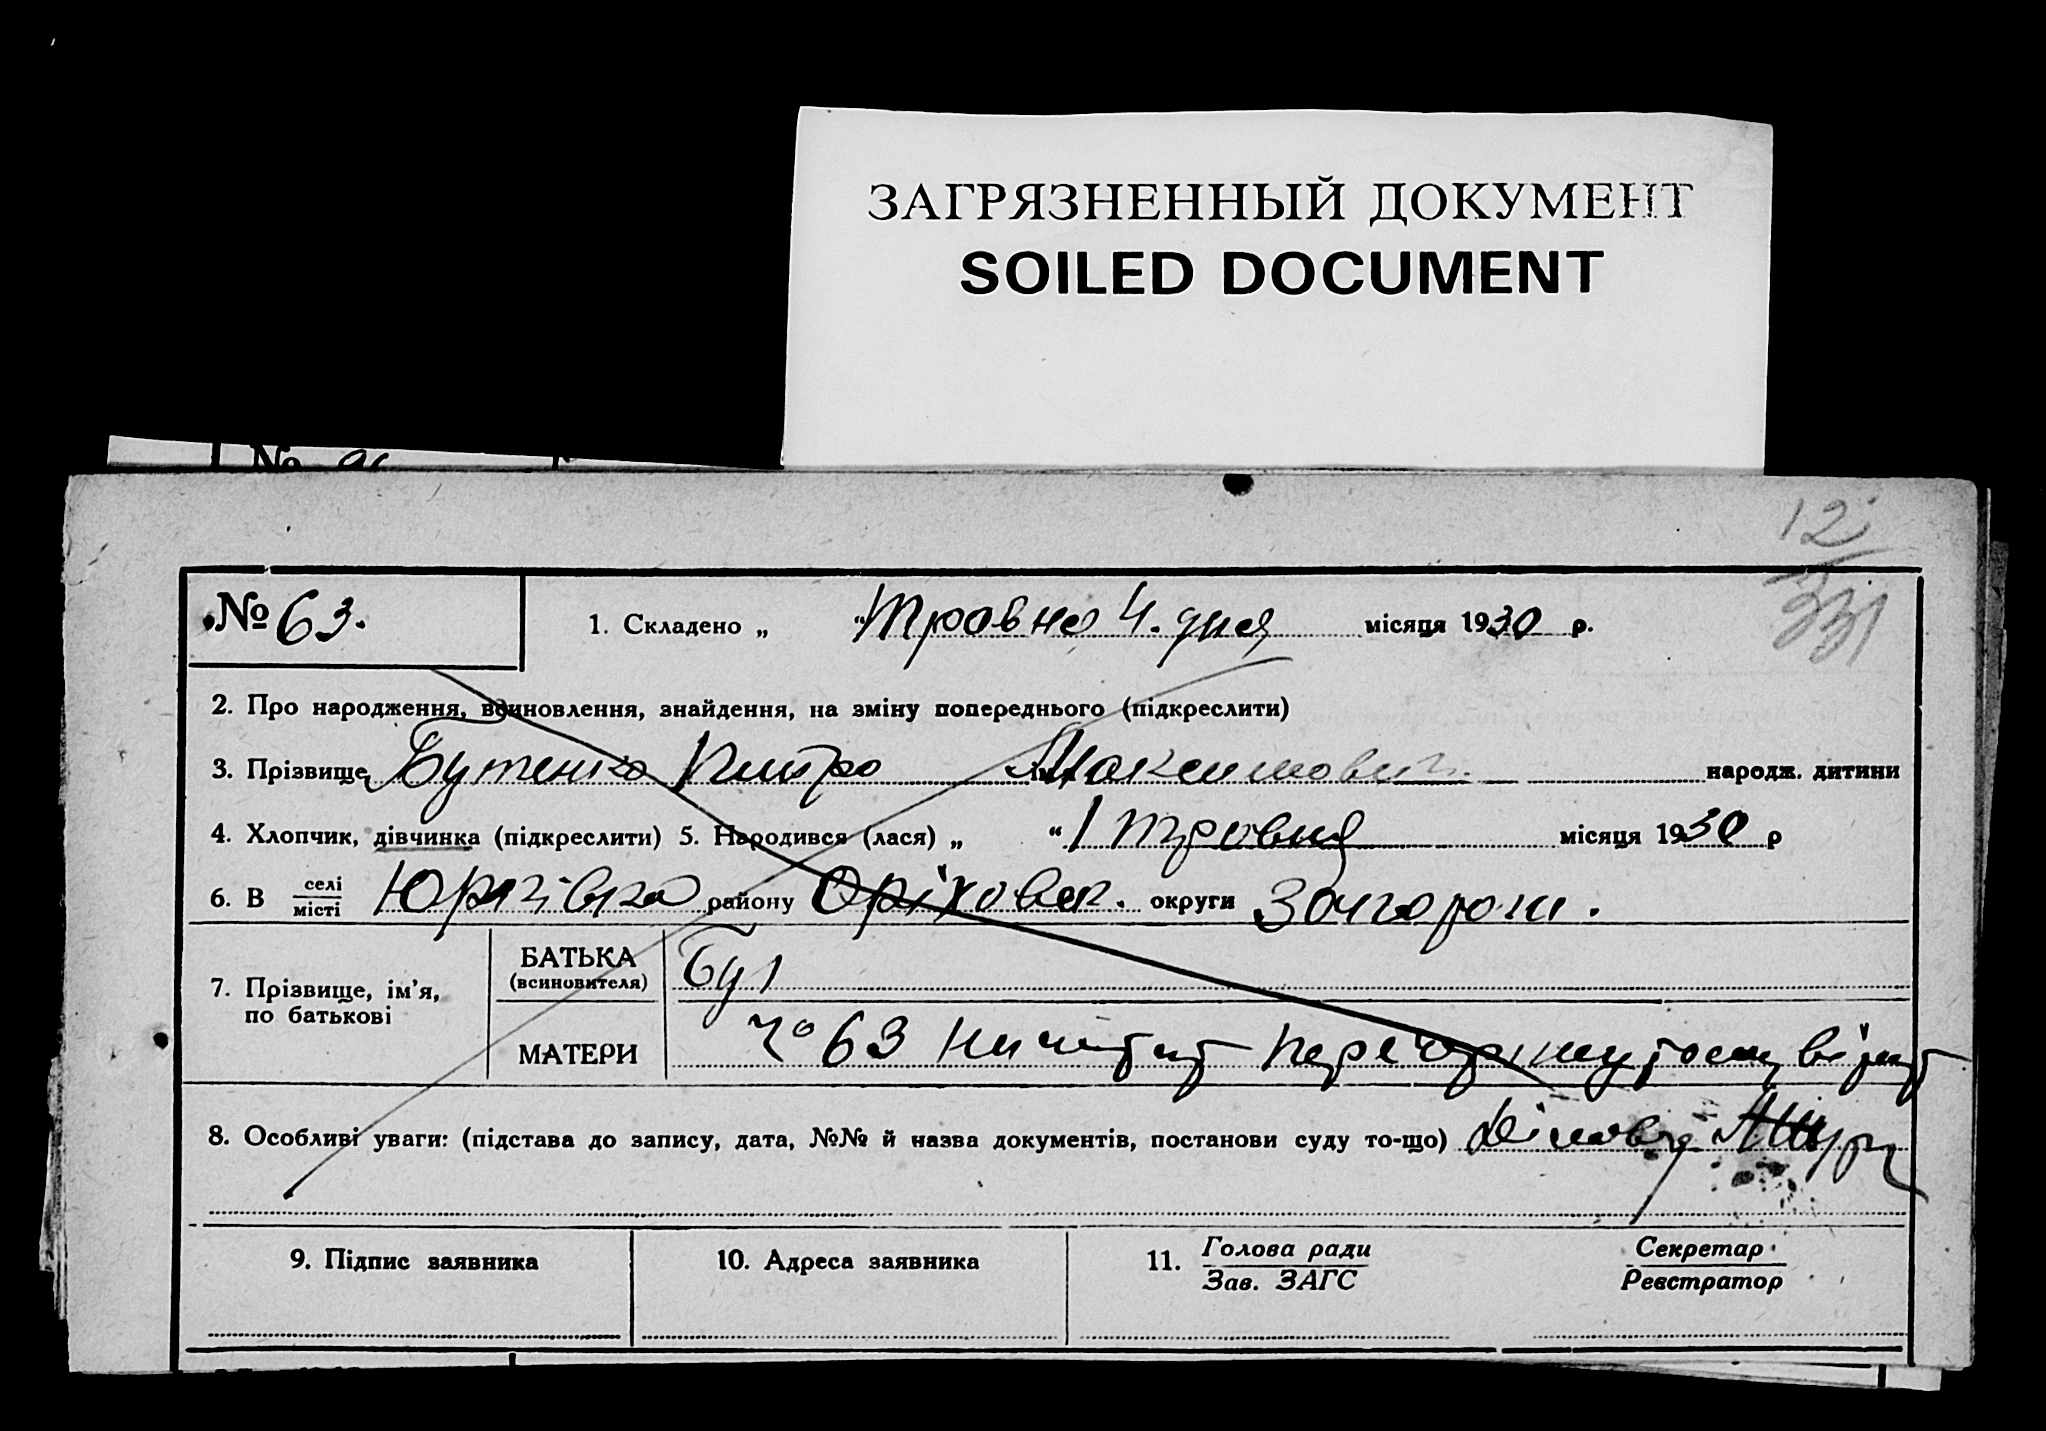 ЗАГРЯЗНЕННЫЙ ДОКУМЕНТ
SOILED DOCUMENT
№ 63.
1. Складено „ “ Травня 4. дня місяця 1930 р.
2. Про народження, всиновлення, знайдення, на зміну попереднього (підкреслити)
3. Прізвище Бутенко Максимович народж. дитини
4. Хлопчик, дівчинка (підкреслити) 5. Народився (лася) „ “ 1 травня місяця 1930 р
6. В селі
місті
Юрківка району Оріховск. округи
7. Прізвище, ім’я,
по батькові
БАТЬКА
(всиновителя)
Бут
МАТЕРИ
№ 63
8. Особливі уваги: (підстава до запису, дата, №№ й назва документів, постанови суду то-що)
9. Підпис заявника
10. Адреса заявника
11. Голова ради
Зав. ЗАГС
Секретар
Реєстратор